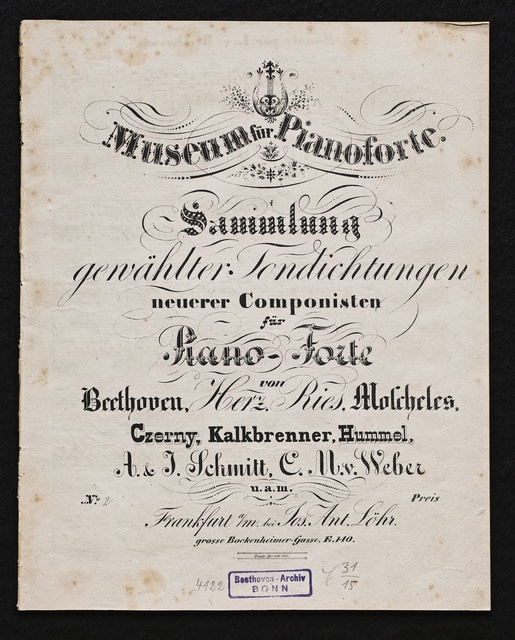 Museum für Pianoforte.
Sammlung
gewählter Tondichtungen
neuerer Componisten
für
Piano-Forte
von
Beethoven, Herz, Ries, Moscheles,
Czerny, Kalkbrenner, Hummel,
A. & J. Schmitt, C. M. v. Weber
u. a. m.
No. 2
Preis
Frankfurt a/m. bei Jos. Ant. Löhr.
grosse Bockenheimer-Gasse. E. 140.
4122
Beethoven-Archiv
BONN
31
15